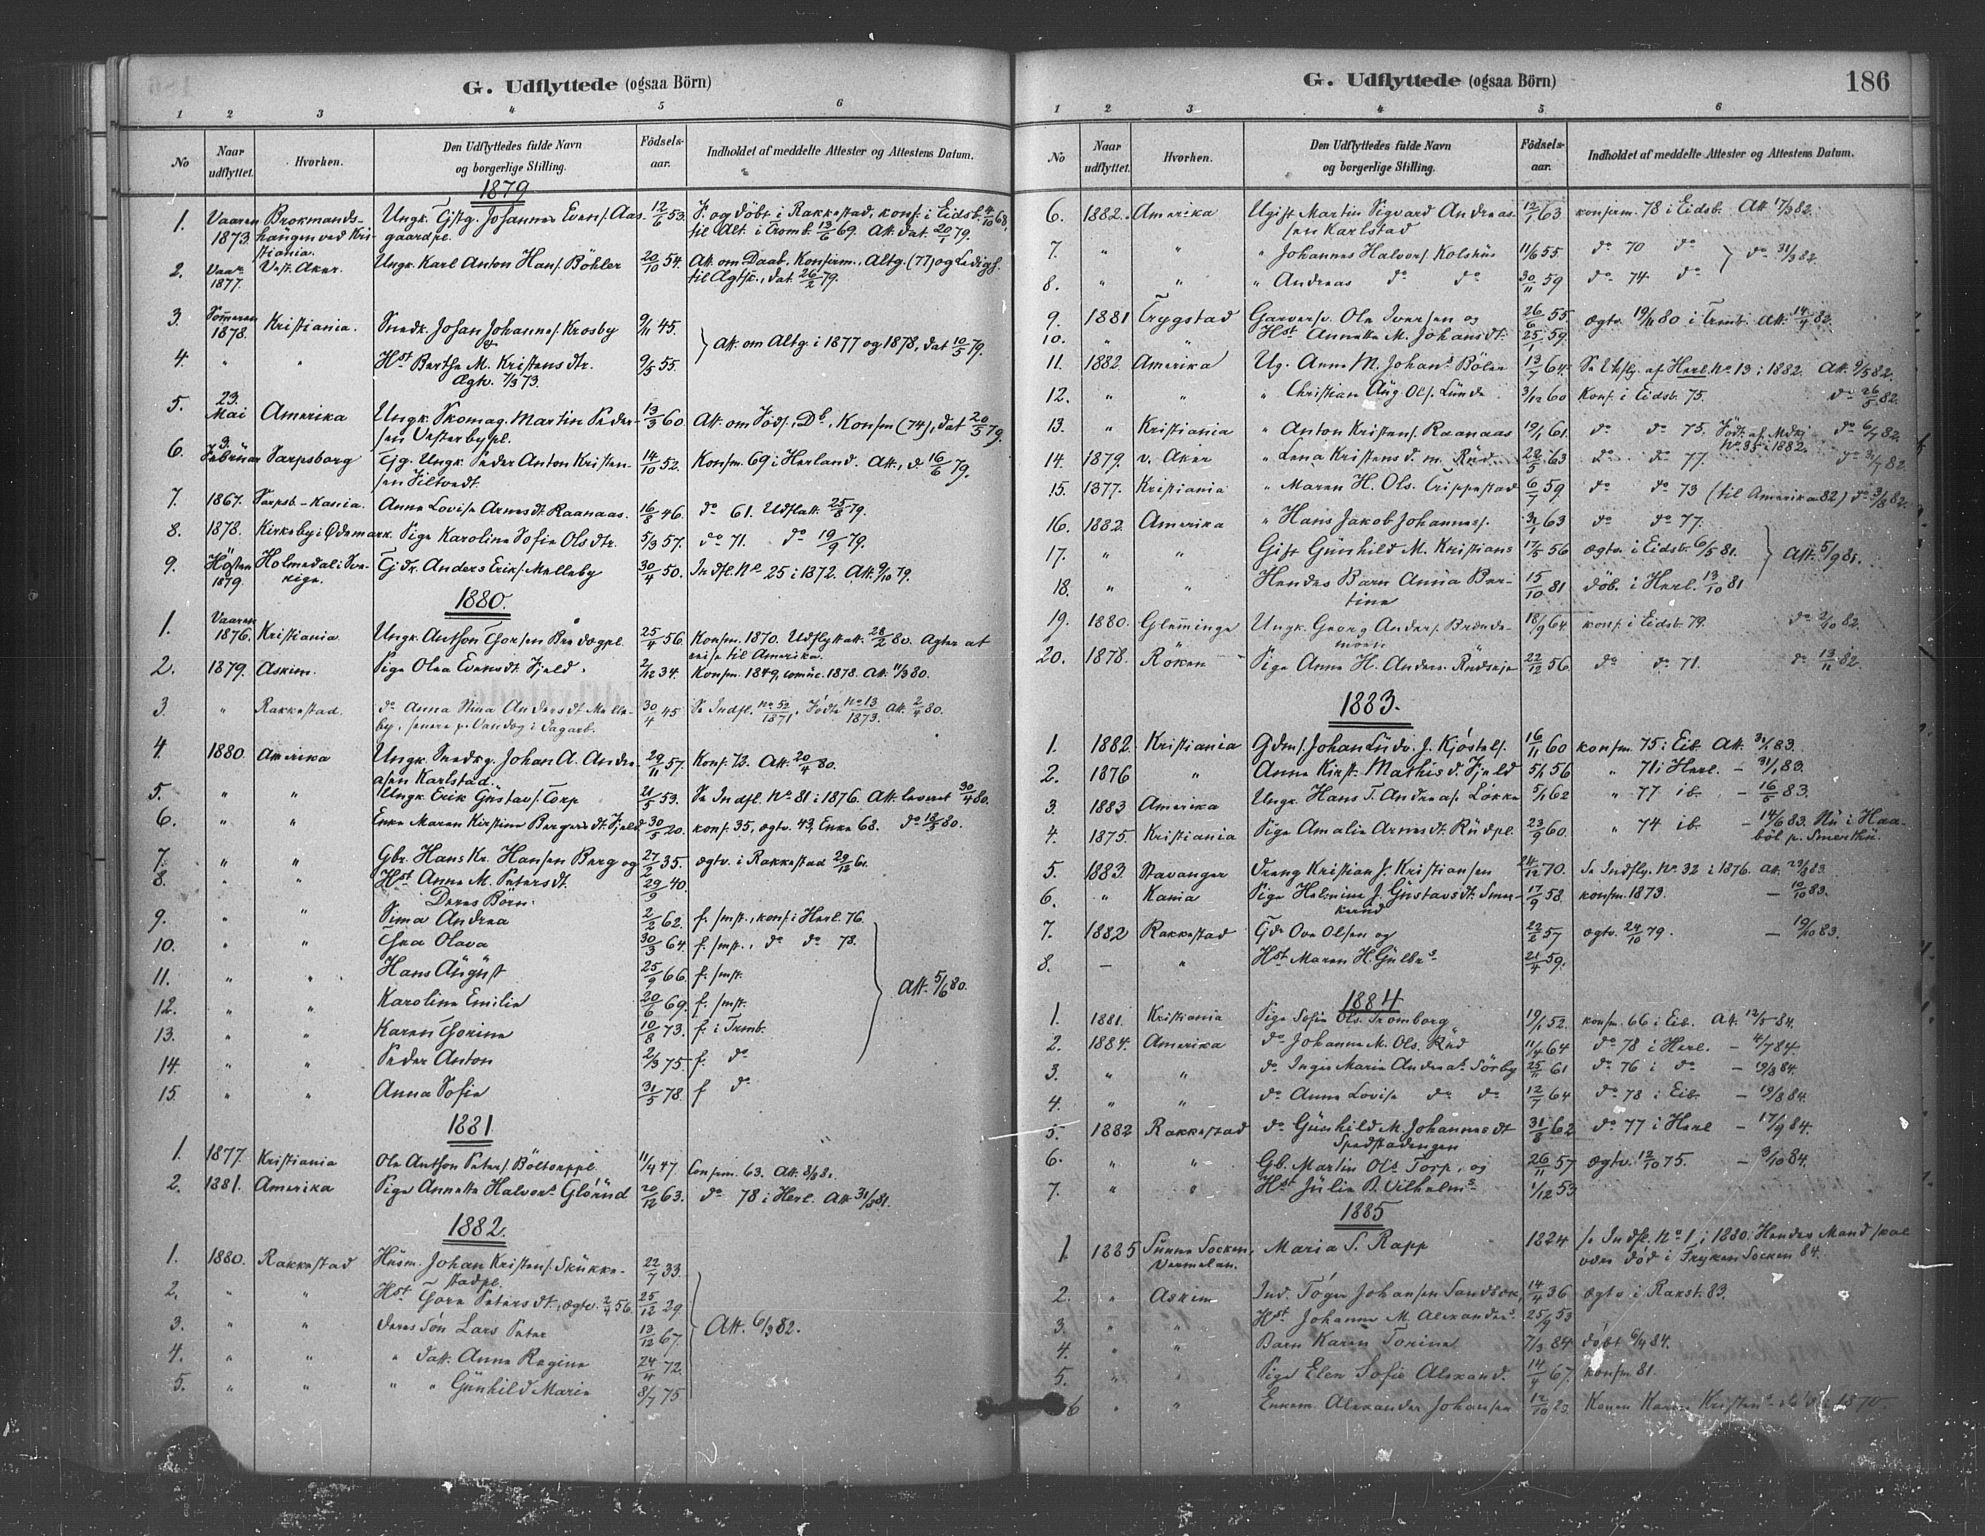 G. Udflyttede (ogsaa Börn)
1 2 3 4 5 6
No Naar udflyttet. Hvorhen. Den Udflyttedes fulde Navn og borgerlige Stilling. Födsels-aar. Indholdet af meddelte Attester og Attestens Datum.
1879
1. Vaaren Brokmands- Ungk. Tjstg. Johannes Evens. Aas- 12/6 53. F. og döbt i Rakkestad, konf. i Eidsb. 4/10 68,
1873. hängen ved Kri- gaardpl. til Alt. i Tromb. 13/6 69. Att. dat. 20/1 79.
stiania.
2. Vaar. Vest. Aker. Ungk. Karl Anton Hans. Böhler 20/10 54. Att. om Daab, Konfirm., Altg. (77) og Ledigh.
1877. til Ægtsk., dat. 26/2 79.
3. Someren Kristiania. Snedk. Johan Johannes. Krosby 9/11 45.
1878. Att. om Altg. i 1877 og 1878, dat 10/5 79.
4. " " Hst Berthe M. Kristens dtr. 9/5 55.
Ægtv. 7/3 73.
5. 23. Mai Amerika Ungk. Skomag. Martin Peder- 13/3 60. Att. om Föds., Db., Konfm (74), dat 20/5 79.
sen Vesterbypl.
6. 3. Februar Sarpsborg Tjg. Ungk. Peder Anton Kristen- 14/10 52. Konfm. 69 i Herland. Att., d 16/6 79.
sen Siltvedt.
7. 1867. Sarpsb.-Kania. Anne Lovise Arnesdt. Raanaas. 16/8 46. do 61. Udflatt. 25/8 79.
8. 1878. Kirkeby i Ødemark. Pige Karoline Sofie Olsdtr. 5/3 57. do 71. do 19/9 79.
9. Hösten Holmedal i Sve- Tjdr. Anders Eriks. Melleby 30/4 50. Indfl. No 25 i 1872. Att. 9/10 79.
1879. rige.
1880.
1. Vaaren 1876. Kristiania. Ungk. Anthon Thorsen Brödogpl. 25/4 56. Konfm. 1870. Udflyttatt. 28/2 80. Agter at
reise til Amerika.
2. 1879. Askim. Pige Olea Evensdt. Fjeld. 2/12 34. Konfm. 1849, comuc. 1878. Att. 11/3 80.
3. " Rakkestad. do Anna Stina Andersdt Melle- 30/4 45 Se Indfl. No 52/1871. Födte No 13/1873. Att. 2/4 80.
by, senere p. Vandog i Dagarb.
4. 1880. Amerika Ungk Snedkg. Johan A. Ander- 29/11 57. Konf. 72. Att. 20/4 80.
sen Karlstad.
5. " " Ungk Erik Gustavs. Torp 21/5 53. Se Indfl. No 81 i 1876. Att. leveret 30/4 80.
6. " " Enke Maren Kirstine Bergersdt. Fjeld 30/5 20. konf. 35, ægtv. 43, Enke 68. do 18/5 80.
7. " " Gbr. Hans Kr. Hansen Berg og 27/2 35. ægtv. i Rakkestad 29/12 61.
8. " " Hst Anne M. Petersdt. 29/9 40.
Deres Börn.
9. " " Sima Andrea 2/2 62. f. smst., konf. i Herl. 76.
10. " " Thea Olava 30/3 64. f. smst., do do 78.
11. " " Hans August 25/9 66. f. smst. Att. 5/6 80.
12. " " Karoline Emilie 20/6 69. f. smst.
13. " " Karen Thorine 10/8 73. f. i Tromb.
14. " " Peder Anton 2/3 75. f. do
15. " " Anna Sofie 31/5 78. f do
1881
1. 1877. Kristiania Ole Anthon Peters. Böltorppl. 11/4 47. Confm. 63. Att. 8/3 81.
2. 1881. Amerika Pige Annette Halvors. Glörud 20/12 63. do 78 i Herl. Att 31/3 81.
1882.
1. 1880. Rakkestad Husm. Johan Kristens. Skukke- 22/7 33.
stadpl.
2. " " Hst Thora Petersdt., ægtv. 2/4 56. 25/12 29.
3. " " deres Sön Lars Peter 13/12 67. Att. 6/3 82.
4. " " " datt. Anne Regine 24/4 72.
5. " " " " Gunhild Marie 8/7 75
G. Udflyttede (ogsaa Börn) 186
1 2 3 4 5 6
No Naar udflyttet. Hvorhen. Den Udflyttedes fulde Navn og borgerlige Stilling. Födsels-aar. Indholdet af meddelte Attester og Attestens Datum.
6. 1882. Amerika Ugift Martin Sigvard Andreas- 12/1 63 konfirm. 78 i Eidsb. Att 17/3 82.
sen Karlstad
7. " " " Johannes Halvors. Kolshus 11/6 55. do 70 do
do 31/3 82.
8. " " " Andreas do do 30/11 59 do 74 do
9. 1881 Trygstad Garvers. Ole Iversen og 26/6 55. ægtv. 19/11 80 i Tromb. Att. 14/4 82.
10. " " Hst Annette M. Johansdt. 25/1 59.
11. 1882 Amerika Ug. Anne M. Johans. Böler 13/7 64. Se Udflg. af Herl. No 13 i 1882. Att. 9/5 82.
12. " " " Christian Aug. Ols. Lunde 3/12 60 Konf. i Eidsb. 75. do 26/5 82.
13. " Kristiania " Anton Kristens. Raanaas 19/1 61. do do 75. do 6/7 82.
No 35 i 1882.
14. 1879. v. Aker " Lena Kristensd. m. Rud 22/5 63 do do 77. do 31/7 82.
15. 1877. Kristiania " Maren H. Ols. Trippestad 6/7 59 do do 73 (til Amerika 82) do 3/8 82.
16. 1882. Amerika " Hans Jakob Johannes. 31/1 63 do do 77.
17. " " Gift Gunhild M. Kristians 17/5 56 ægtv. i Eidsb. 6/5 81. Att. 5/9 81.
18. " " Hendes Barn Anna Ber- 15/10 81 döb. i Herl. 13/10 81
tine
19. 1880. Glemminge Ungk. Georg Anders. Brænde- 18/9 64. konf. i Eidsb. 79. do 2/10 82.
moen
20. 1878. Röken Pige Anne H. Anders. Rudseje 22/12 56. do do 71. do 13/11 82.
1883.
1. 1882. Kristiania Gdms. Johan Ludv. J. Kjöstels. 16/11 60 konfm. 75 i Eib. Att. 31/1 83.
2. 1876 " Anne Kirst. Mathisd. Fjeld 5/1 56 " 71 i Herl. - 31/1 83.
3. 1883 Amerika Ungk. Hans T. Andreas. Løkke 5/1 62 " 77 ib. - 16/5 83.
4. 1875. Kristiania Pige Amalie Arnesdt. Rudpl. 23/9 60. " 74 ib. - 14/6 83. Nu i Haa-
böl p. Smertku.
5. 1883. Stavanger Dreng Kristian J. Kristiansen 24/12 70. Se Indfly. No. 32 i 1876. Att. 29/8 83.
6. " Kania Pige Helmine J. Gustavsdt. Smer- 17/9 58. konfm. 1873. - 10/10 83.
kerud
7. 1882 Rakkestad Tjdr Ove Olsen og 22/2 57 ægtv. 24/10 79. - 19/10 83.
8. - " Hst. Maren H. Gulbrs 21/4 59.
1884
1. 1881. Kristiania Pige Sofie Ols. Tromborg 19/1 52. konfm. 66 i Eib. Att. 12/5 84.
2. 1884. Amerika do Johanne M. Ols. Rud 11/4 64 do 78 i Herl. - 4/7 84.
3. " " do Inger Marie Andreas. Sörby 25/11 61 do 76 i do - 19/8 84.
4. " " do Anne Lovise do do 12/7 64 do 78 i Eib. - 19/8 84.
5. 1882 Rakkestad do Gunhild M. Johannesdt 31/8 62 do 77 i Herl - 17/9 84.
Spedstadengen
6. " " Gb. Martin Ols Torp, og 26/11 57 ægtv. 12/10 75. - 3/10 84.
7. " " Hst Julie B. Vilhelms. 1/12 53
1885
1 1885 Sunne Socken, Maria S. Rapp 1824 se Indfl. No 1 i 1880. Hendes Mand skal
Vermelan. være död i Fryken Socken 84.
2. " Askim Ind. Töger Johansen Sandbæk, 14/4 36 ægtv i Rakst. 83.
3. " " Hst Johanne M. Alexanders 25/9 53
4. " " Barn Karen Torine 7/3 84 döbt 6/4 84.
5. " " Pige Elen Sofie Alexand. 14/4 67. konfm 81.
6 " " Enkem. Alexander Johansen 12/10 23. Konen Karen Kristens. död i 1870.